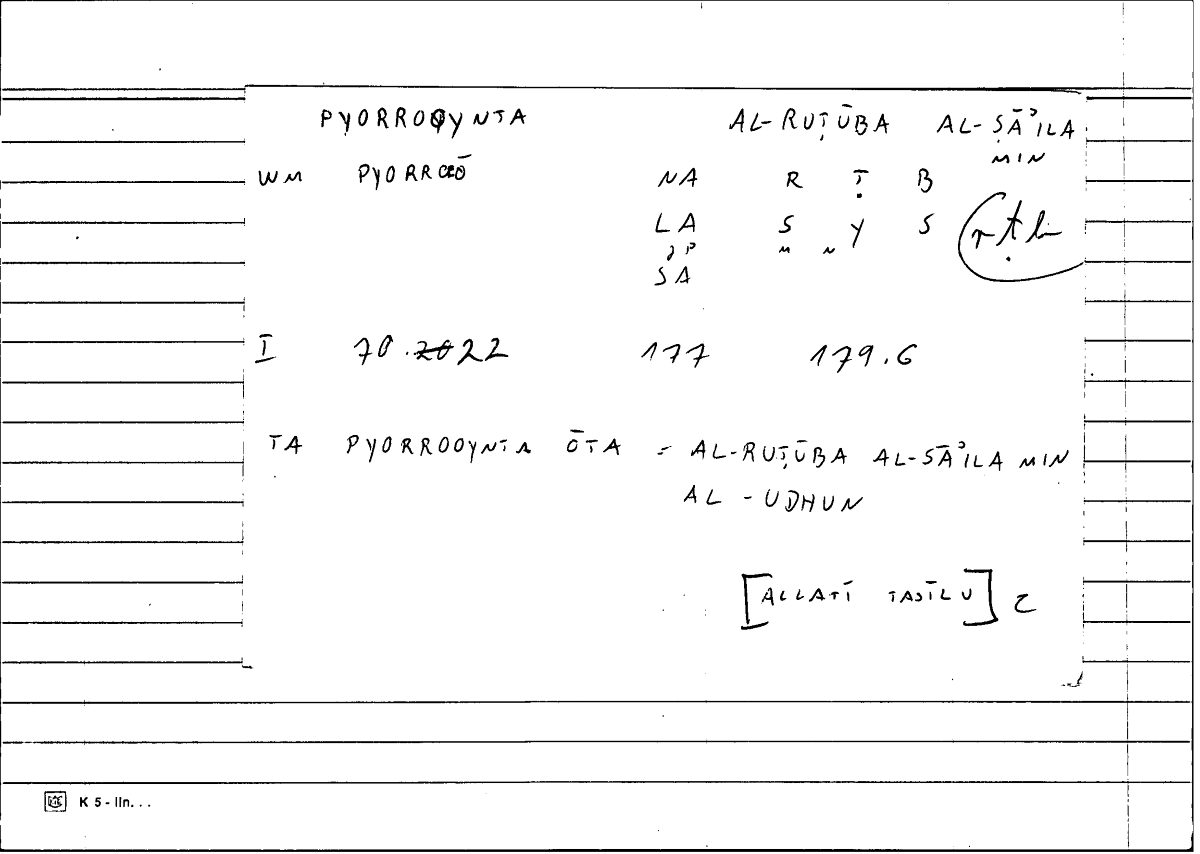 PYORROOYNTA AL-RUṬŪBA AL-SĀʾILA
MIN
WM PYORREŌ NA R Ṭ B
LA S Y S rṭb
gP M N
SA
I 70.2022 177 179.6
TA PYORROOYNTA ŌTA = AL-RUṬŪBA AL-SĀʾILA MIN
AL-UDHUN
[ALLATĪ TASĪLU] C
K 5 - lln...